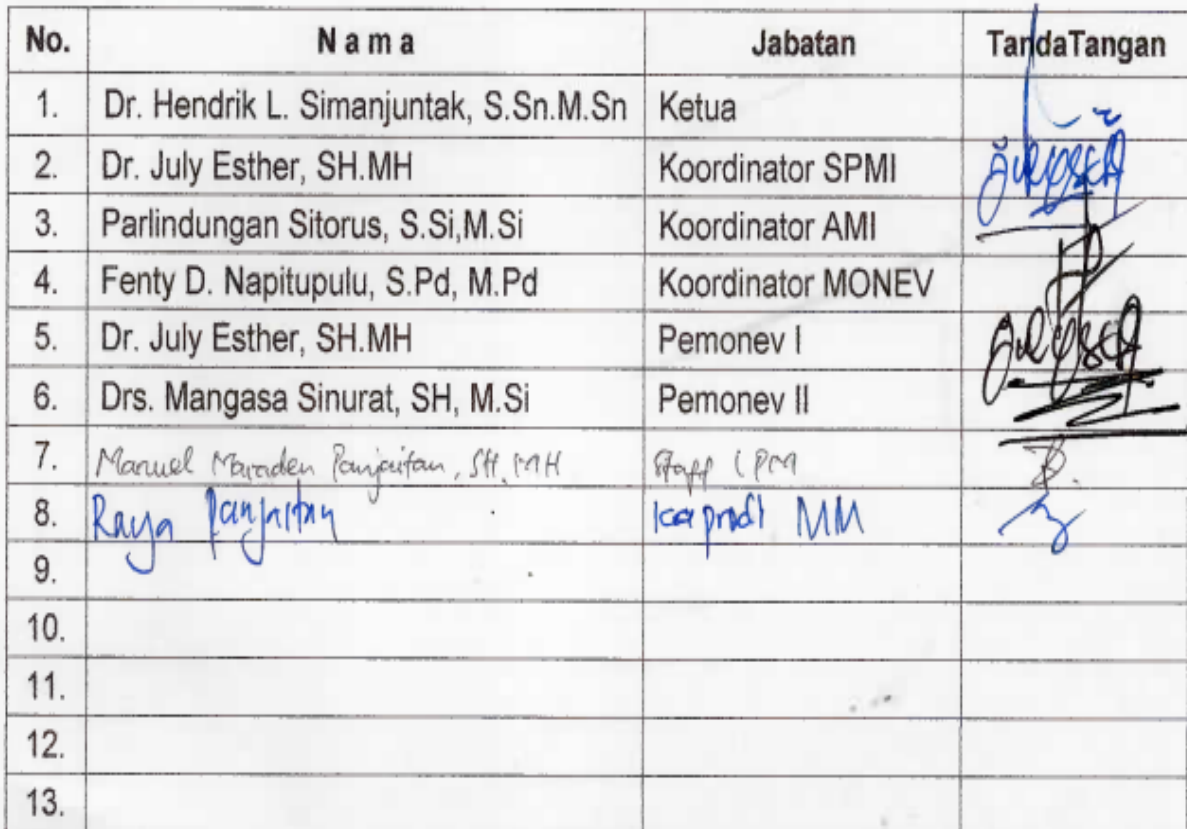 No. N a m a Jabatan TandaTangan
1. Dr. Hendrik L. Simanjuntak, S.Sn.M.Sn Ketua
2. Dr. July Esther, SH.MH Koordinator SPMI
3. Parlindungan Sitorus, S.Si,M.Si Koordinator AMI
4. Fenty D. Napitupulu, S.Pd, M.Pd Koordinator MONEV
5. Dr. July Esther, SH.MH Pemonev I
6. Drs. Mangasa Sinurat, SH, M.Si Pemonev II
7. Manuel Maraden Panjaitan, SH, MH Staff LPM
8. Raya Panjaitan kaprodi MM
9.
10.
11.
12.
13.